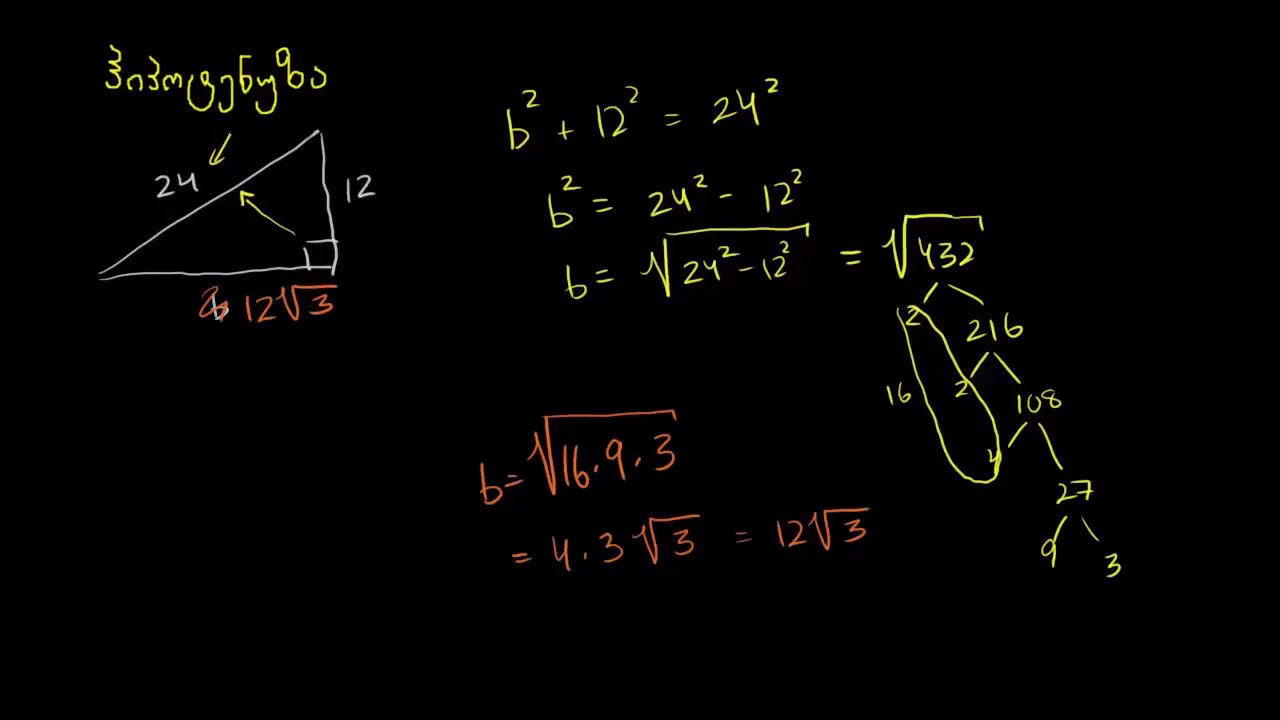 ჰიპოტენუზა
24
12
b 12√3
b² + 12² = 24²
b² = 24² - 12²
b = √(24² - 12²) = √432
2 216
16
2 108
4 27
9 3
b = √(16 · 9 · 3)
= 4 · 3√3 = 12√3